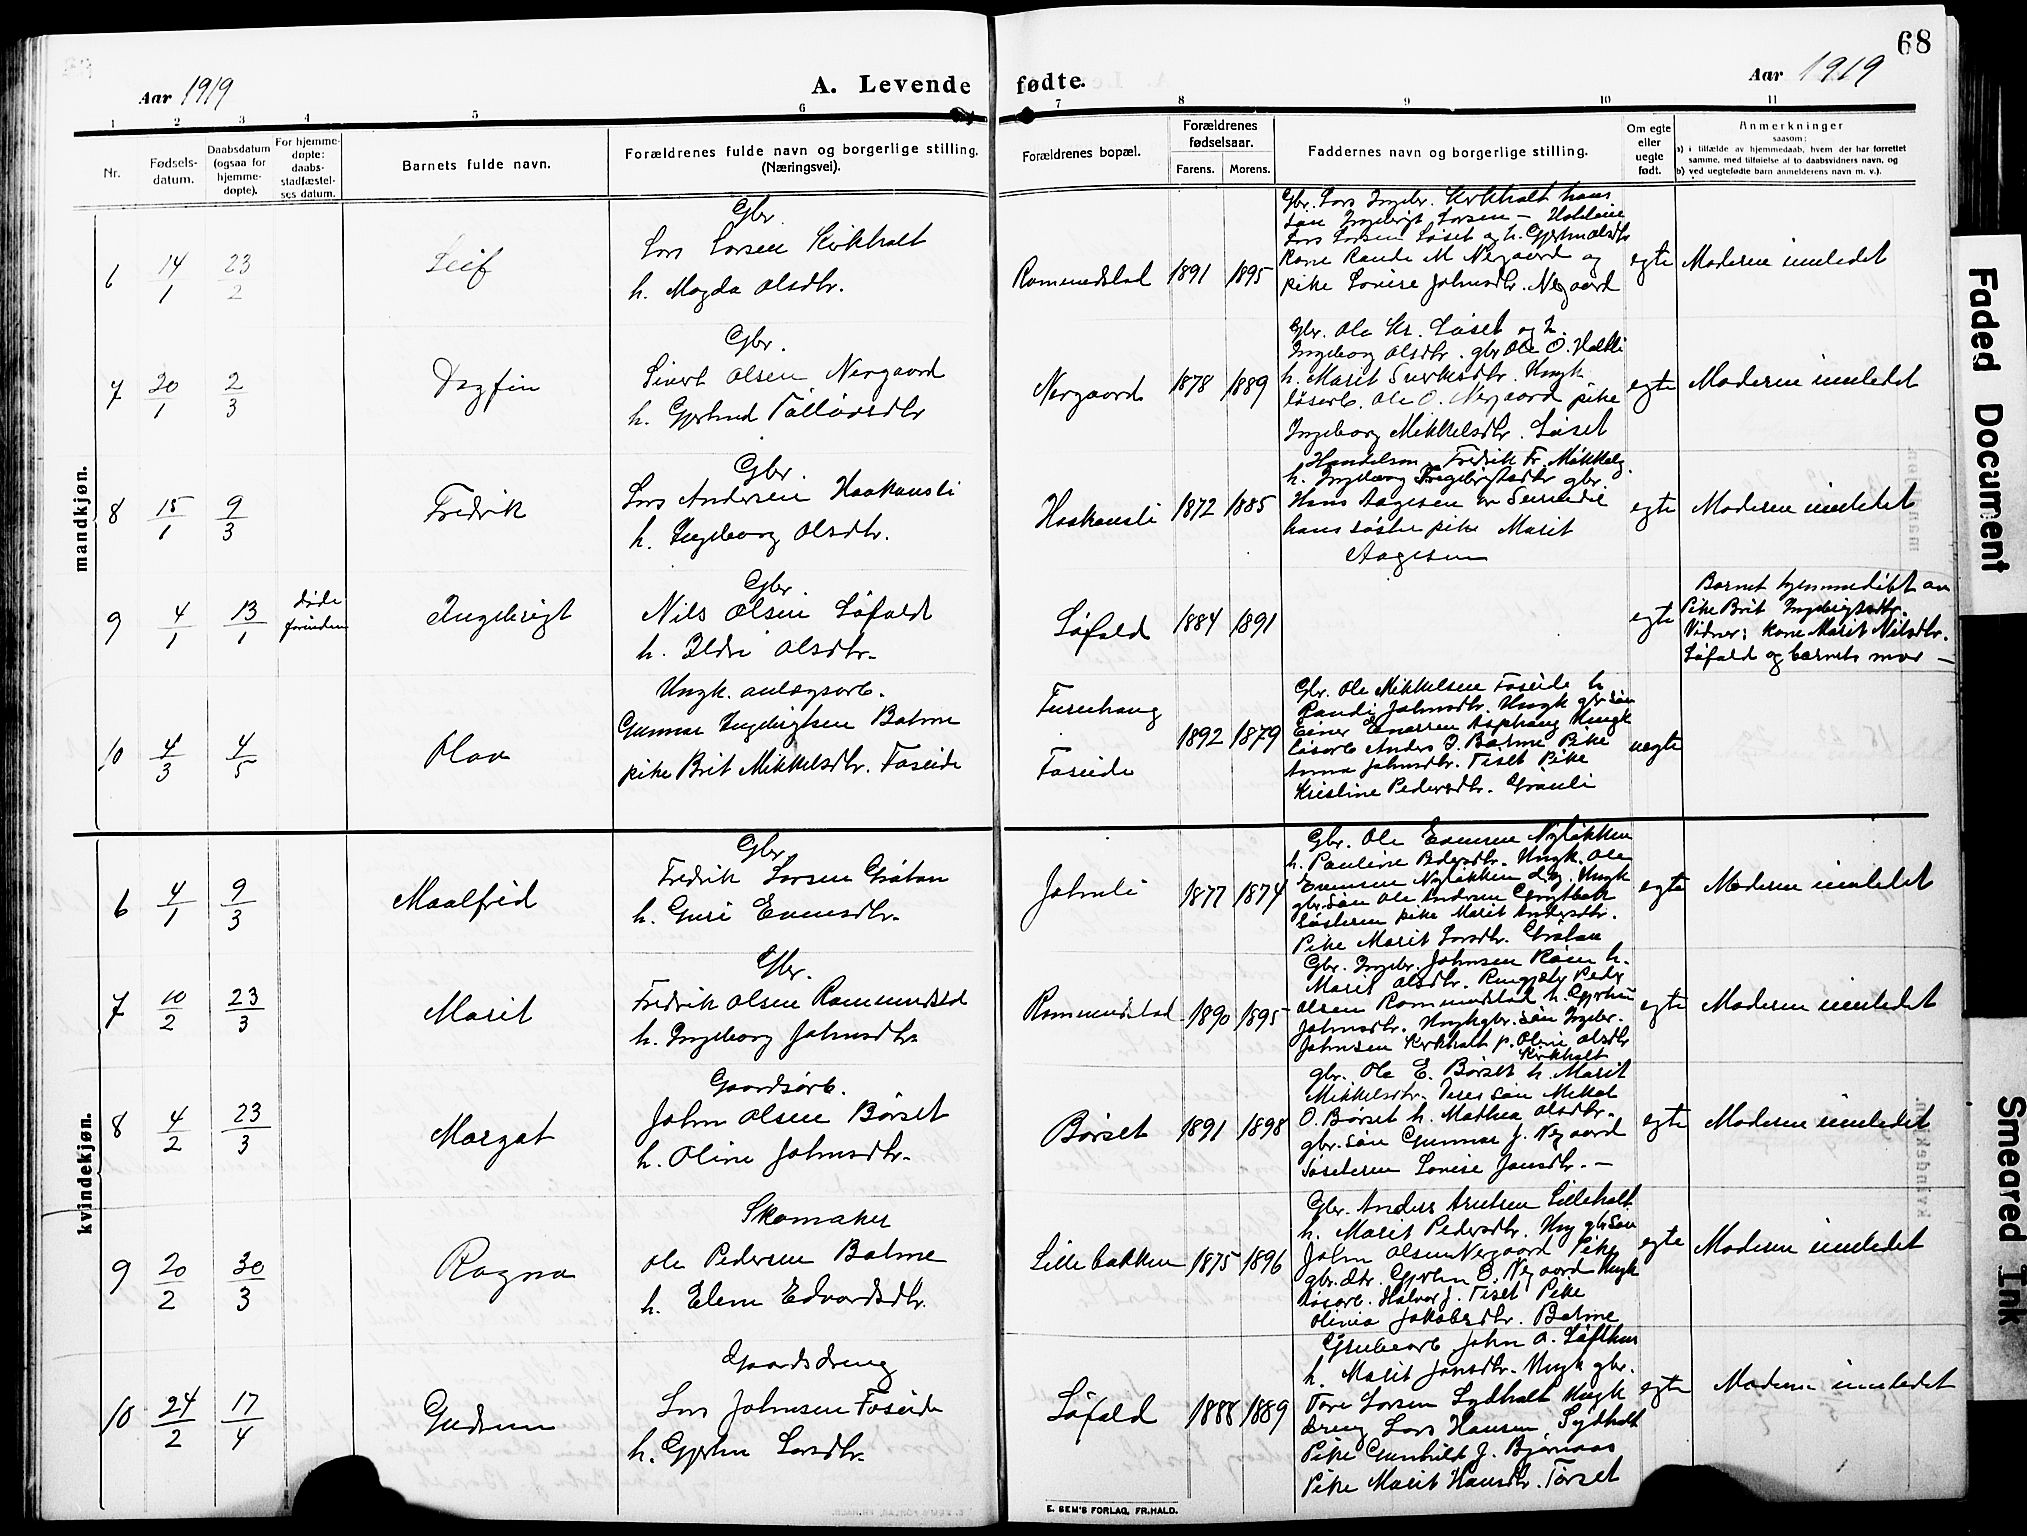 68
Aar 1919
A. Levende fødte.
Aar 1919
1 2 3 4 5 6 7 8 9 10 11
Nr.
Fødsels-
datum.
Daabsdatum
(ogsaa for
hjemme-
døpte).
For hjemme-
døpte:
daabs-
stadfæstel-
ses datum.
Barnets fulde navn.
Forældrenes fulde navn og borgerlige stilling.
(Næringsvei).
Forældrenes bopæl.
Forældrenes
fødselsaar.
Farens. Morens.
Faddernes navn og borgerlige stilling.
Om egte
eller
uegte
født.
Anmerkninger
saasom:
a) i tilfælde av hjemmedaab, hvem der har forrettet
samme, med tilføielse af to daabsvidners navn, og
b) ved uegtefødte barn anmelderens navn m. v.).
mandkjøn.
6 14/1 23/2 Leif
Gbr.
Lars Larsen Kirkholt
h. Magda Olsdtr.
Rommundstad 1891 1895
Gbr. Lars Ingebr. Kirkholt hans
søn Ingebrigt Larsen –
Lars Larsen Løset og h. Gjertru Olsdtr
kone Rande M Nergaard og
pike Lovise Johnsdtr. Nergaard
egte Moderen innledet
7 20/1 2/3 Dagfin
Gbr.
Sivert Olsen Nergaard
h. Gjertrud Tolløvsdtr
Nergaard 1878 1889
Gbr. Ole Kr. Løset og h.
Ingeborg Olsdtr. gbr Ole O.
h. Marit Sivertsdtr. Ungk
løsarb. Ole O. Nergaard pike
Ingeborg Mikkelsdtr. Løset
egte Moderen innledet
8 15/1 9/3 Fredrik
Gbr.
Lars Andersen Haakansli
h. Ingeborg Olsdtr.
Haakansli 1872 1885
Handelsm. Fredrik Fr. Mikkels.
h. Ingeborg Ingebrigtsdtr gbr.
Hans Aagesen
hans søster pike Marit
Aagesen
egte Moderen innledet
9 4/1 13/1 døde forinden Ingebrigt
Gbr.
Nils Olsen Løfald
h. Eldri Olsdtr.
Løfald 1884 1891
egte
Barnet hjemmedøbt av
Pike Brit Ingebrigtsdtr.
Vidner: kone Marit Nilsdtr.
Løfald og barnets mor –
10 4/3 4/5 Olav
Ungk. anlægsarb.
Gunnar Ingebrigtsen Bolme
pike Brit Mikkelsdtr. Foseide
Furuhaug
Foseide
1892 1879
Gbr. Ole Mikkelsen Foseide h
Randi Johnsdtr. Ungk gbr søn
Einar Einarsen Asphaug Ungk
løsarb Anders O. Bolme Pike
Anna Johnsdtr. Tiset Pike
Kristine Pedersdtr. Granli
uegte
kvindekjøn.
6 4/1 9/3 Maalfrid
Gbr
Fredrik Larsen Gråtan
h. Guri Evensdtr.
Johnli 1877 1874
Gbr. Ole Evensen Nyløkken
h. Pauline Pedersdtr. Ungk. Ole
Evensen Nyløkken d.y. Ungk
gbr.søn Ole Andersen
søsteren pike Marit Andersdtr.
Pike Marit Larsdtr. Gråtan
egte Moderen innledet
7 10/2 23/3 Marit
Gbr.
Fredrik Olsen Rommundstad
h. Ingeborg Johnsdtr.
Rommundstad 1890 1895
Gbr. Ingebr. Johnsen Røen h.
Marit Olsdtr. Peder
Olsen Rommundstad h. Gjertru
Johnsdtr. Ungk gbr. søn Ingebr.
Johnsen Kirkholt p. Oline Olsdtr
Kirkholt
egte Moderen innledet
8 4/2 23/3 Margot
Gaardsarb.
John Olsen Børset
h. Oline Johnsdtr.
Børset 1891 1898
gbr. Ole E. Børset h. Marit
Mikkelsdtr. Deres søn Mikal
O. Børset h. Mathea Olsdtr.
gbr. søn Gunnar J. Nergaard
Søsteren Lovise Jonsdtr. –
egte Moderen innledet
9 20/2 30/3 Ragna
Skomaker
Ole Pedersen Bolme
h. Elen Edvardsdtr.
Lillebakken 1875 1896
Gbr. Anders Arntsen Lilleholt
h. Marit Pedersdtr. Ung gbr søn
John Olsen Nergaard Pike
gbr.dtr. Gjertru O. Nergaard Ungk
løsarb. Halvor J. Tiset Pike
Olivia Jakobsdtr. Bolme
egte Moderen innledet
10 24/2 17/4 Gudrun
Gaardsdreng
Lars Johnsen Foseide
h. Gjertru Larsdtr.
Løfald 1888 1889
Grubearb John O. Løfthus
h. Marit Jonsdtr. Ungk gbr.
Tore Larsen Sydholt Ungk
dreng Lars Hansen Sydholt
Pike Gunhild J. Bjørnaas
Pike Marit Hansdtr. Torset
egte Moderen innledet
E. SEM'S FORLAG, FR.HALD.
Faded Document
Smeared Ink